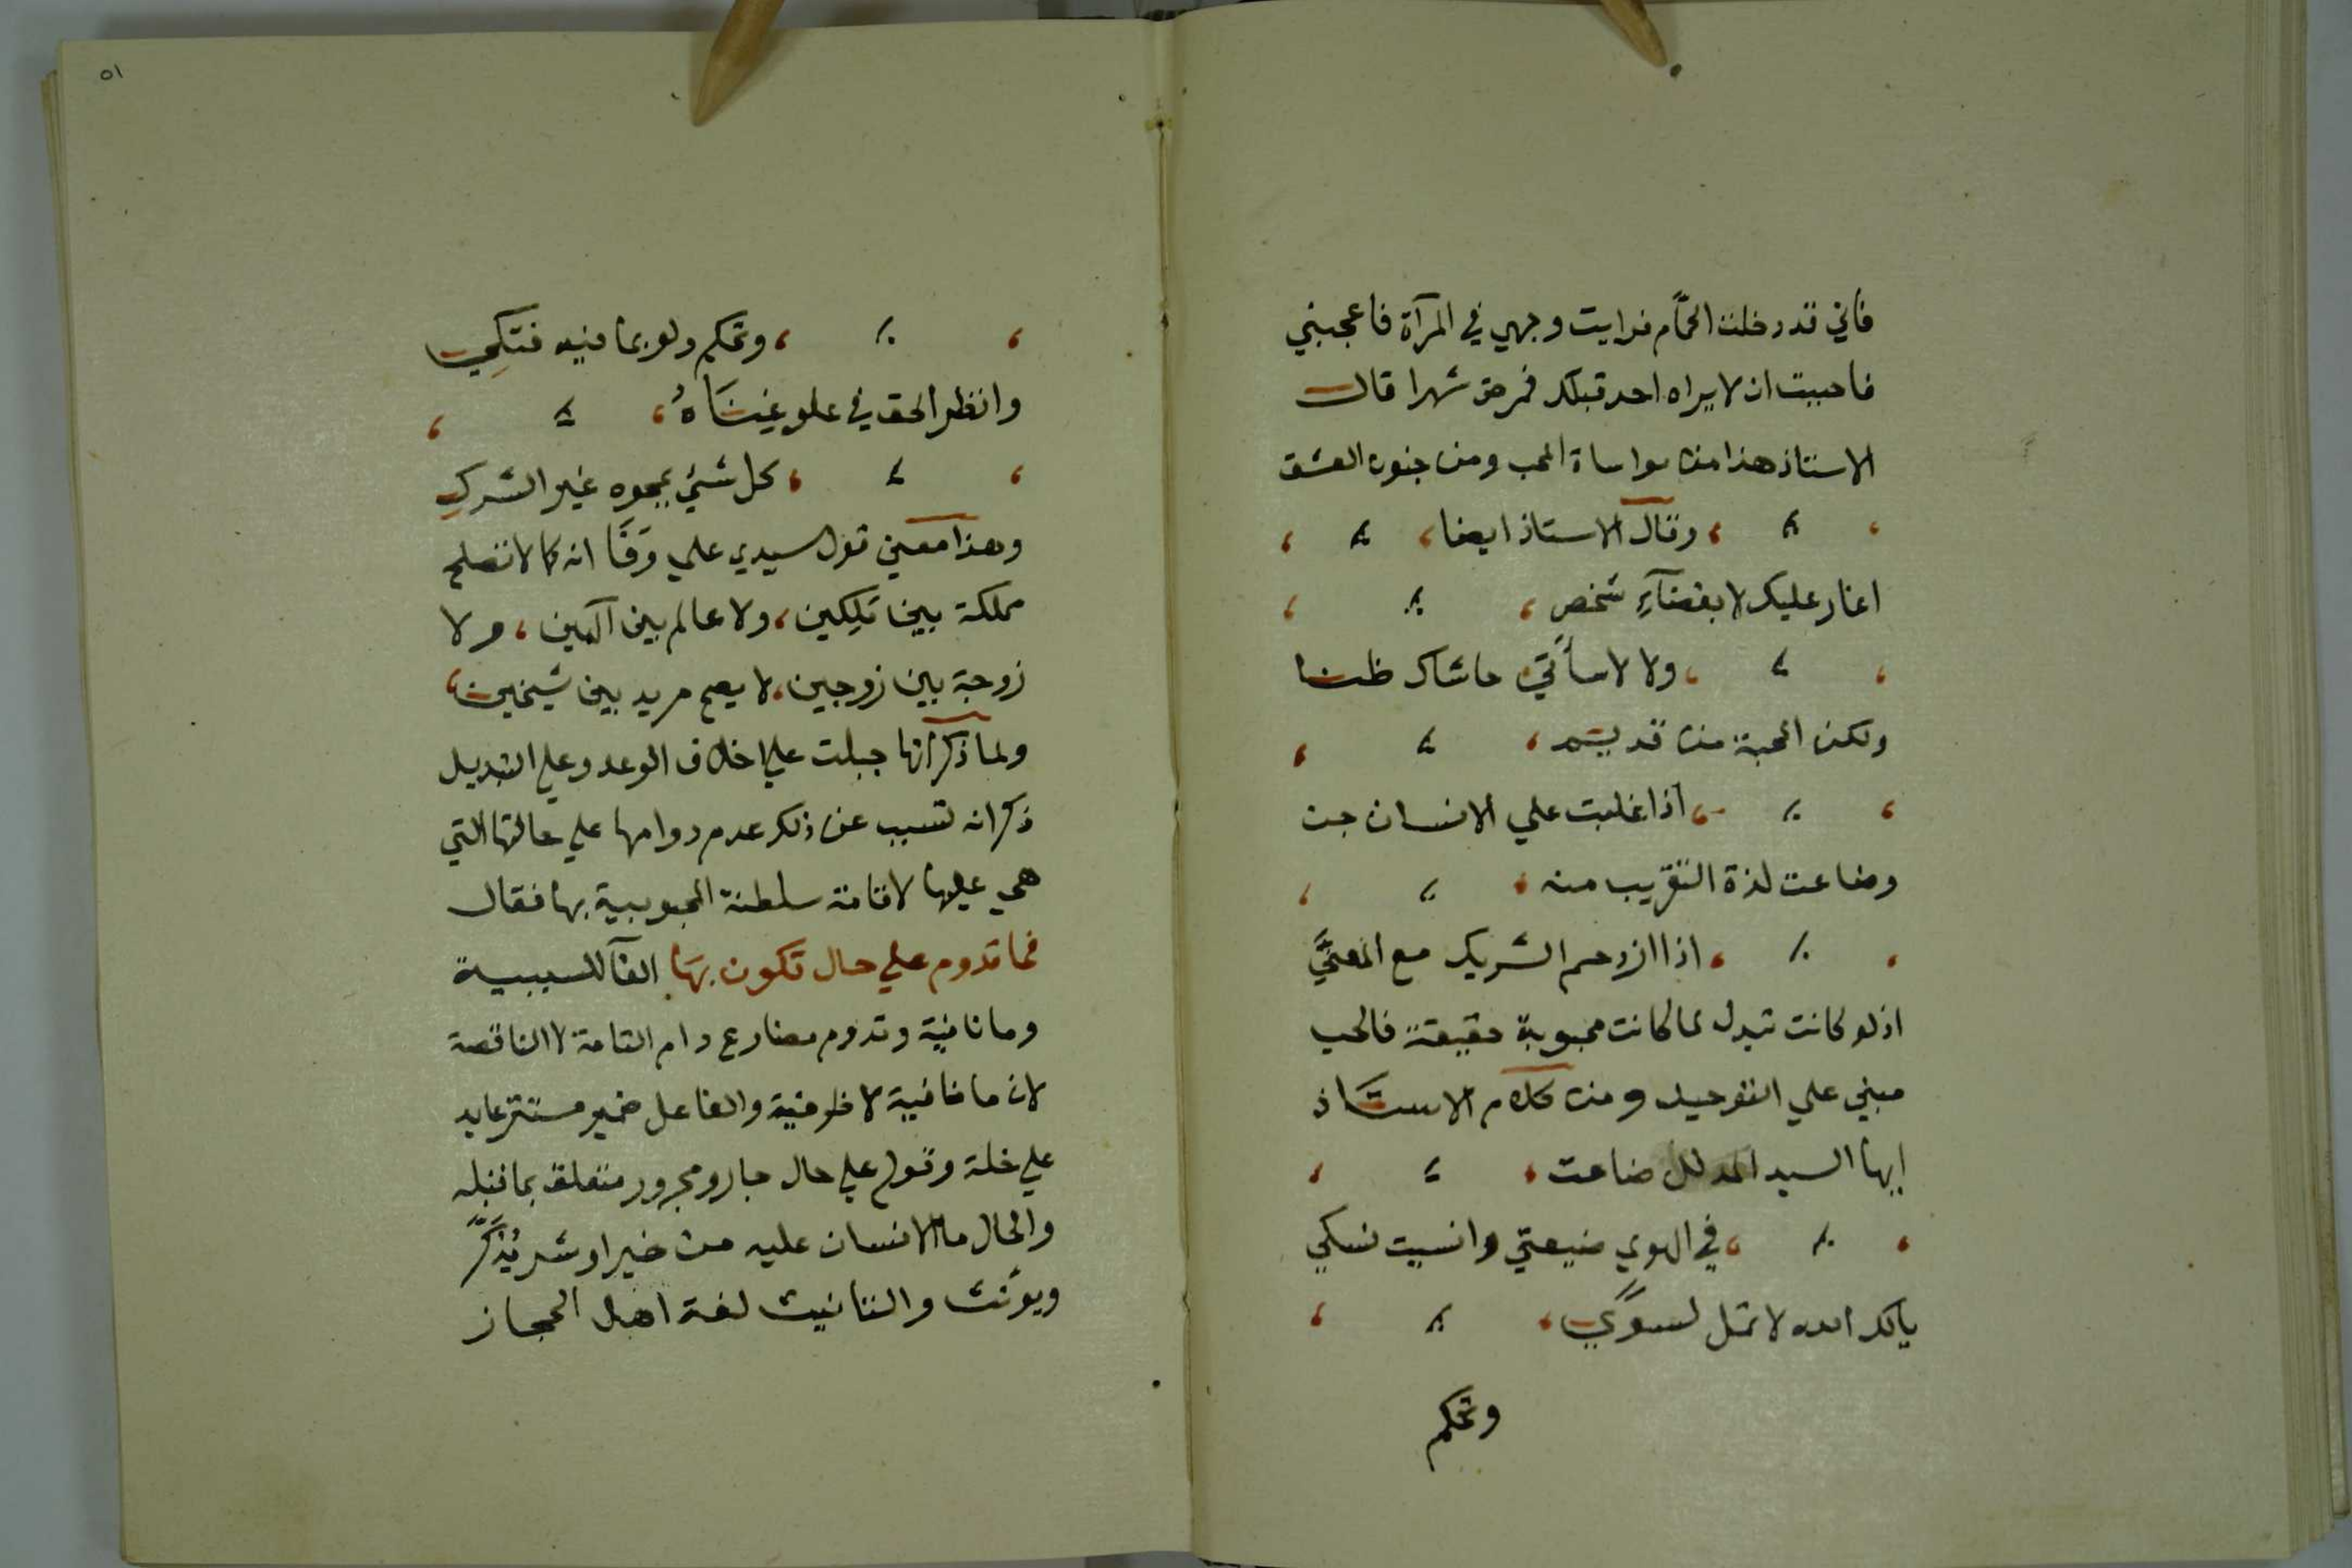 فاني قد دخلت الحمّام فرايت وجهي في المرآة فاعجبني
فاحببت ان لا يراه احد قبلك فمرض شهرا قال
الاستاذ هذا من مواساة المحب ومن جنون العشق
، ؛ ، وقال الاستاذ ايضا ، ؛ ،
اغار عليك لا بغضآءِ شخص ، ؛ ،
، ؛ ، ولا لاسأتي حاشاك ظنا
ولكن المحبة من قديم ، ؛ ،
، ؛ ، اذا غلبت علي الانسان جنا
وضاعت لذة التقريب منه ، ؛ ،
، ؛ ، اذا ازدحم الشريك مع المعنَّي
اذ لو كانت تبدل لما كانت محبوبة حقيقة فالحب
مبني علي التوحيد ومن كلام الاستاذ
ايها السيد المدلل ضاعت ، ؛ ،
، ؛ ، في الهوي ضيعتي وانسيت نسكي
يالك الله لا تمل لسوَّي ، ؛ ،
وتحكم
٥١
، ؛ ، وتحكم ولو بما فيه فتكي
وانظر الحق في علو غناهُ ، ؛ ،
، ؛ ، كل شئ يمحوه غير الشركِ
وهذا معني قول سيدي علي وفا انه كما لا تصلح
مملكة بين مَلِكين ، ولا عالم بين آلهين ، ولا
زوجة بين زوجين ، لا يصح مريد بين شيخين ،
ولما ذكر انها جبلت علي اخلاف الوعد وعلي التبديل
ذكر انه تسبب عن ذلك عدم دوامها علي حالتها التي
هي عليها لاقامة سلطنة المحبوبية بها فقال
فما تدوم علي حال تكون بها الفآ للسببية
وما نافية وتدوم مضارع دام التامة لا الناقصة
لان ما نافية لا ظرفية والفاعل ضمير مستتر عايد
علي خلة وقوله علي حال جار ومجرور متعلق بما قبله
والحال ما الانسان عليه من خير او شر يُذَكَّر
ويؤنث والتانيث لغة اهل الحجاز